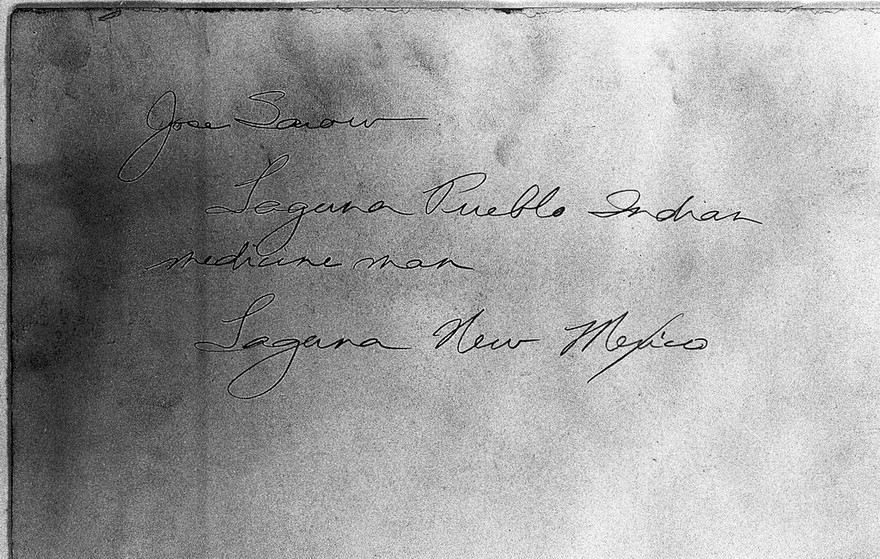 Jose Sarow
Laguna Pueblo Indian
medicine man
Laguna New Mexico